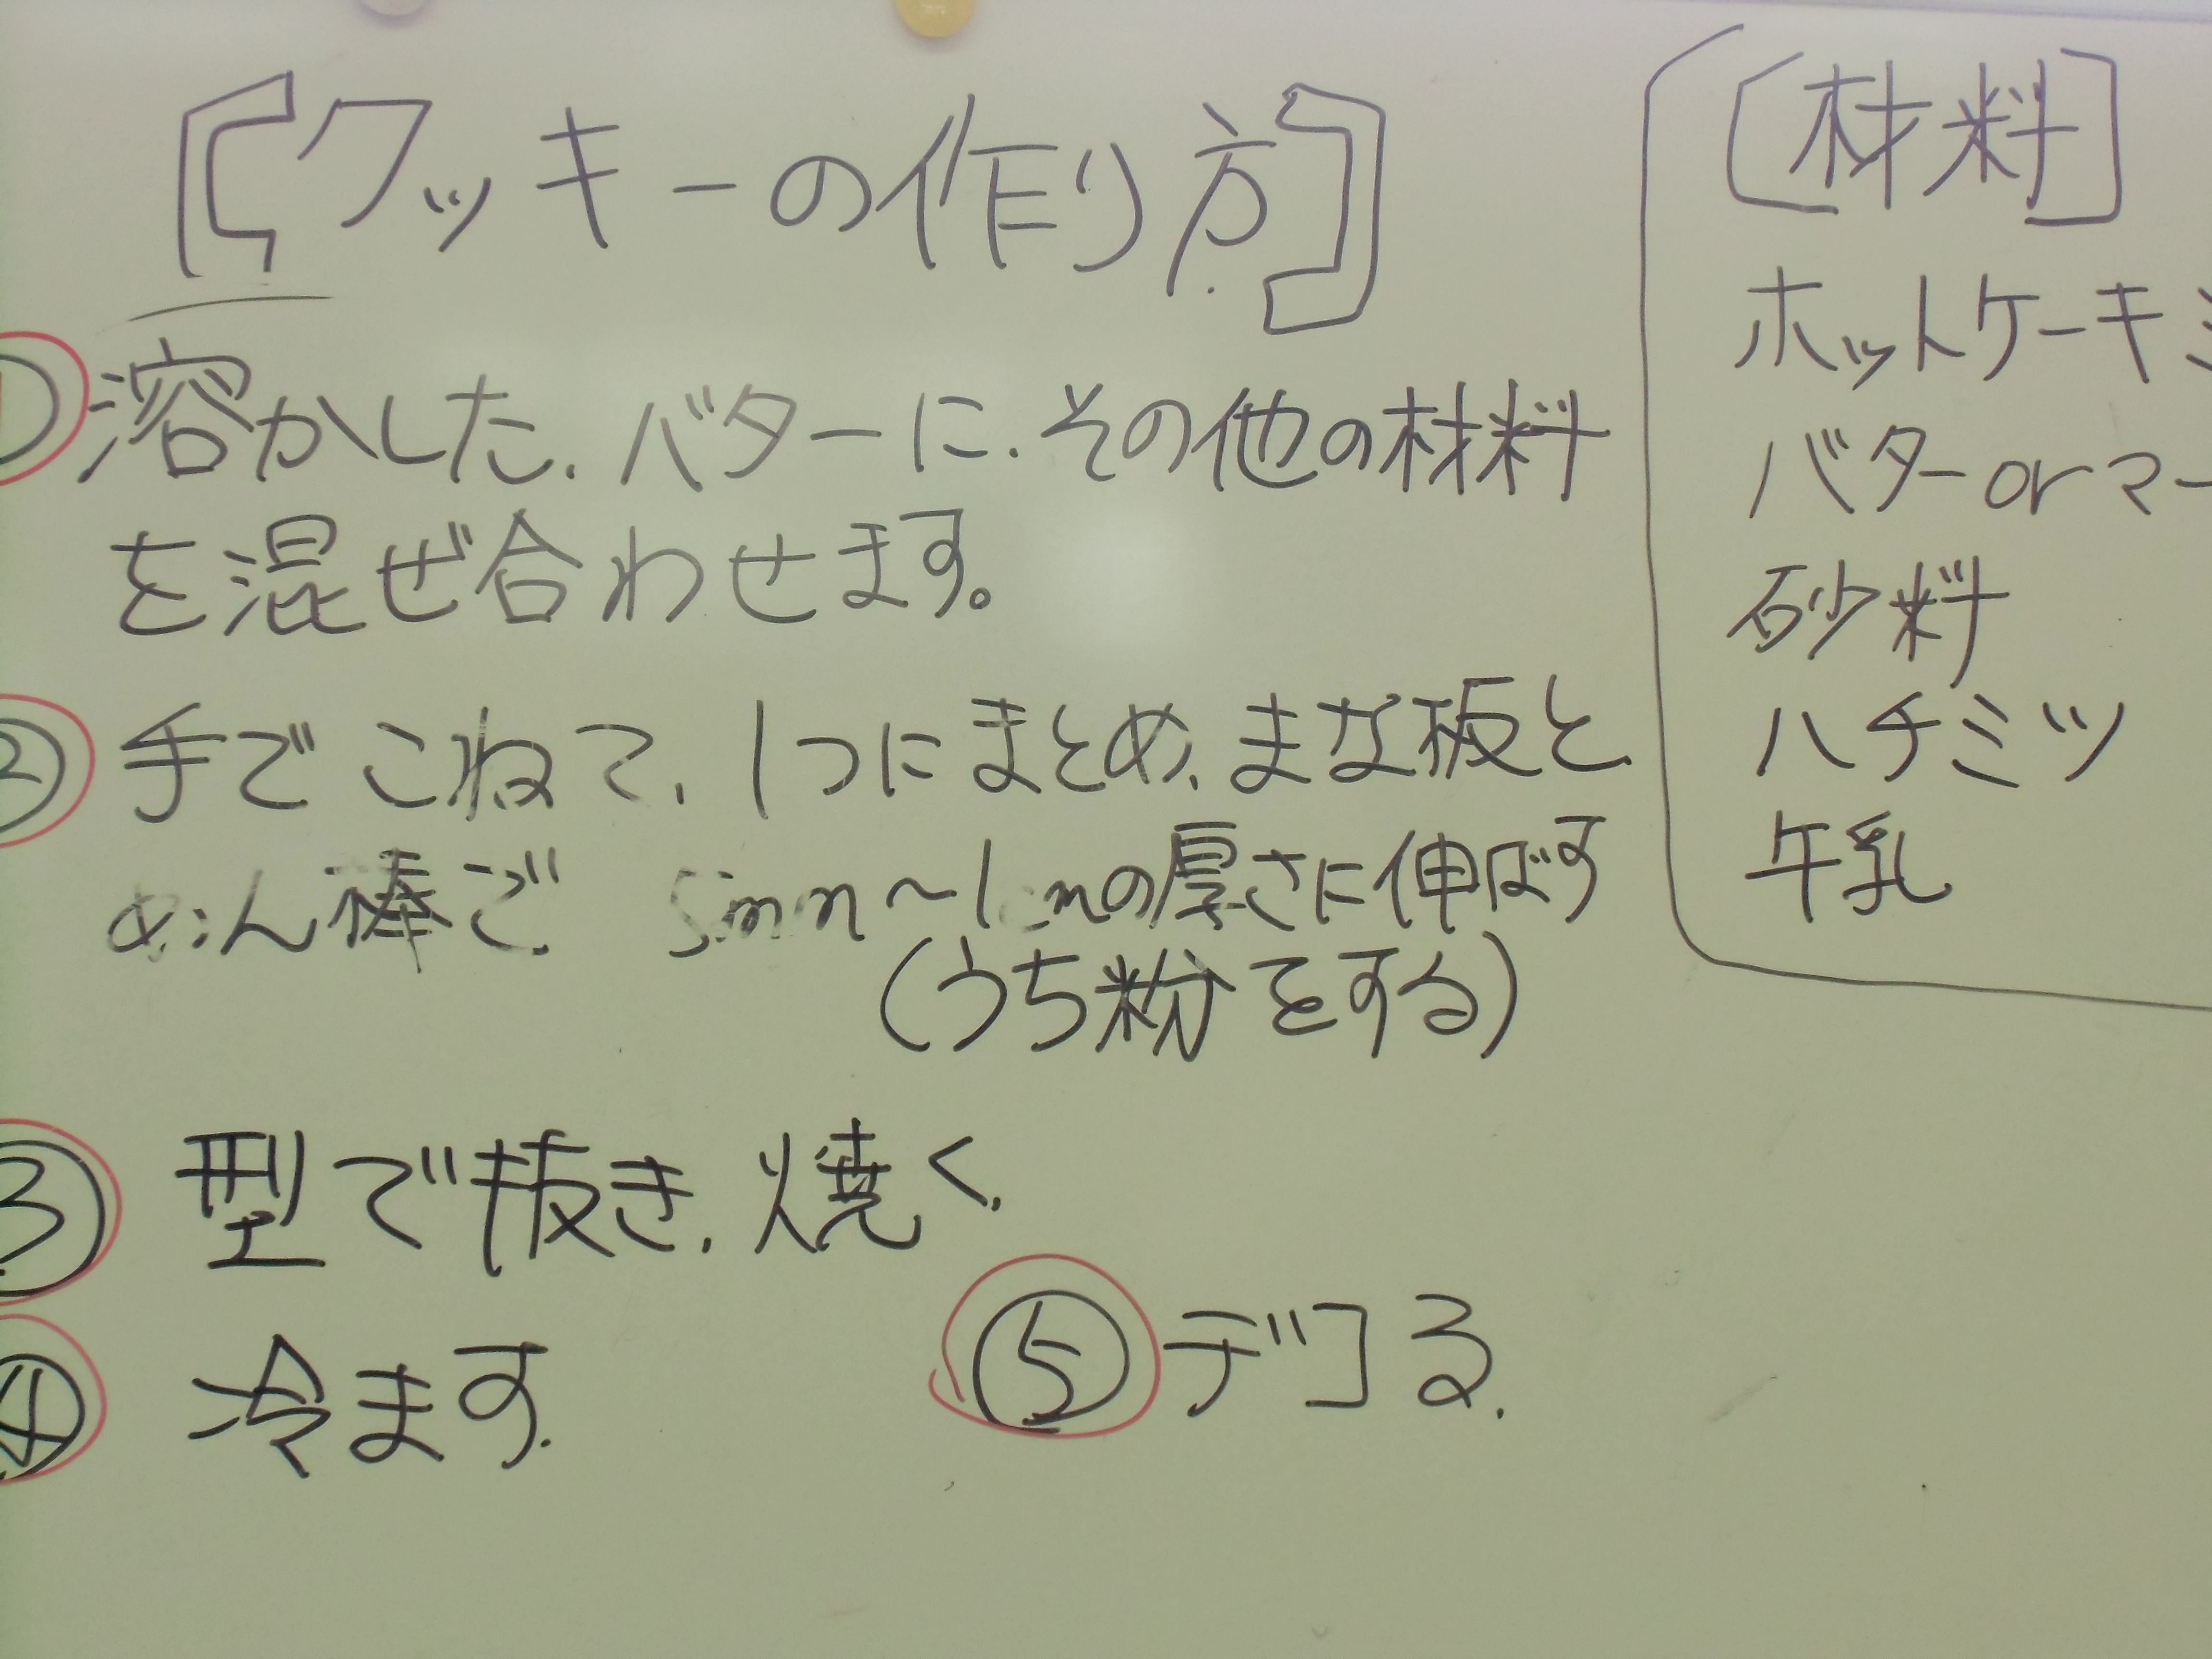 [クッキーの作り方]
①溶かした、バターに、その他の材料
を混ぜ合わせます。
②手でこねて、1つにまとめ、まな板と
めん棒で 5mm～1cmの厚さに伸ばす
(うち粉をする)
③型で抜き、焼く、
④冷ます.
⑤デコる.
[材料]
ホットケーキミ
バターorマー
砂料
ハチミツ
午乳